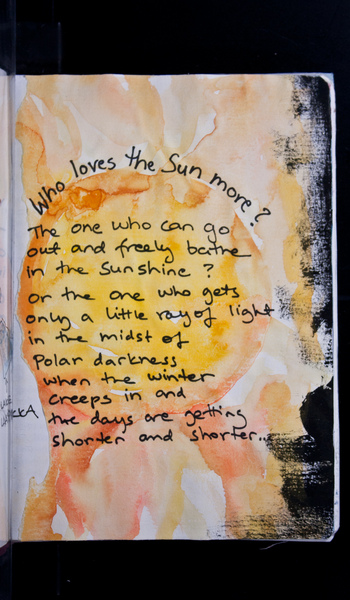 Who loves the Sun more?
The one who can go
out and freely bathe
in the Sunshine?
or the one who gets
only a little ray of light
in the midst of
Polar darkness
when the winter
creeps in and
the days are getting
shorter and shorter..